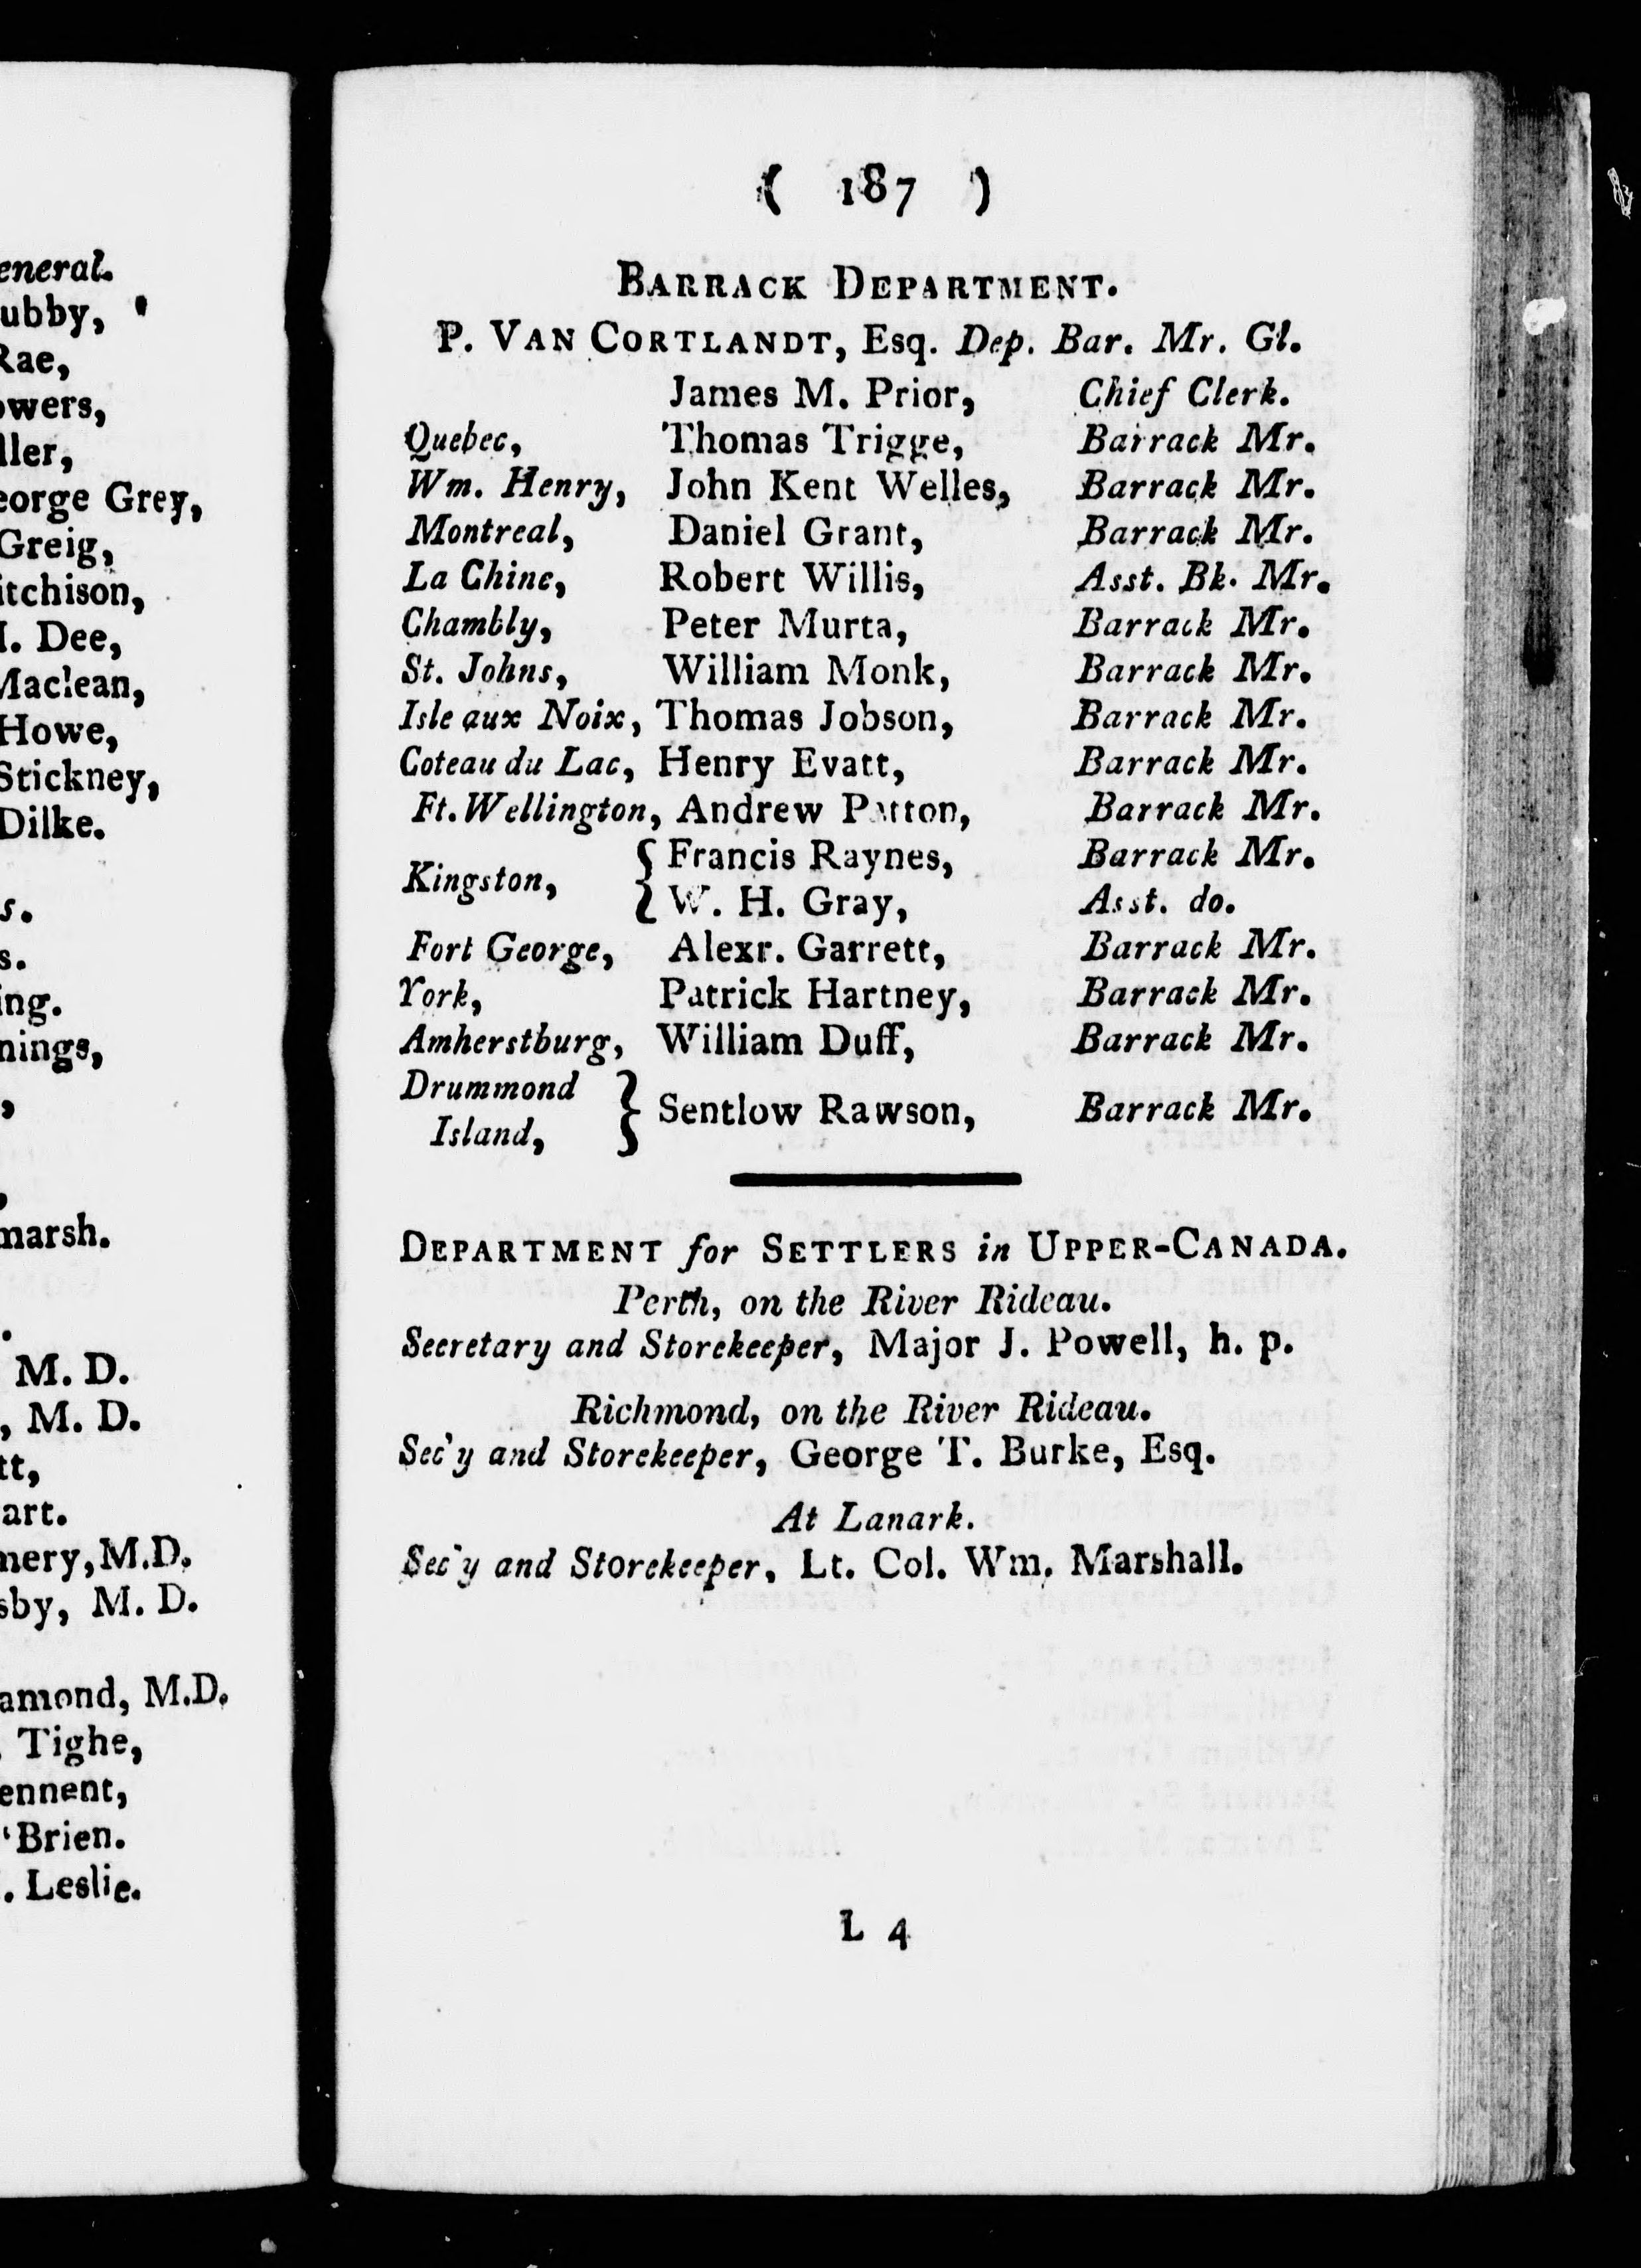 eneral.
ubby,
Rae,
owers,
ller,
eorge Grey,
Greig,
itchison,
. Dee,
Maclean,
Howe,
Stickney,
Dilke.
s.
s.
ing.
nings,
,
,
marsh.
.
M. D.
, M. D.
tt,
art.
nery, M.D.
sby, M. D.
amond, M.D.
. Tighe,
ennent,
'Brien.
. Leslie.
( 187 )
BARRACK DEPARTMENT.
P. VAN CORTLANDT, Esq. Dep. Bar. Mr. Gl.
James M. Prior, Chief Clerk.
Quebec, Thomas Trigge, Barrack Mr.
Wm. Henry, John Kent Welles, Barrack Mr.
Montreal, Daniel Grant, Barrack Mr.
La Chine, Robert Willis, Asst. Bk. Mr.
Chambly, Peter Murta, Barrack Mr.
St. Johns, William Monk, Barrack Mr.
Isle aux Noix, Thomas Jobson, Barrack Mr.
Coteau du Lac, Henry Evatt, Barrack Mr.
Ft. Wellington, Andrew Patton, Barrack Mr.
Kingston, { Francis Raynes, Barrack Mr.
W. H. Gray, Asst. do.
Fort George, Alexr. Garrett, Barrack Mr.
York, Patrick Hartney, Barrack Mr.
Amherstburg, William Duff, Barrack Mr.
Drummond
Island, } Sentlow Rawson, Barrack Mr.
DEPARTMENT for SETTLERS in UPPER-CANADA.
Perth, on the River Rideau.
Secretary and Storekeeper, Major J. Powell, h. p.
Richmond, on the River Rideau.
Sec'y and Storekeeper, George T. Burke, Esq.
At Lanark.
Sec'y and Storekeeper, Lt. Col. Wm. Marshall.
L 4